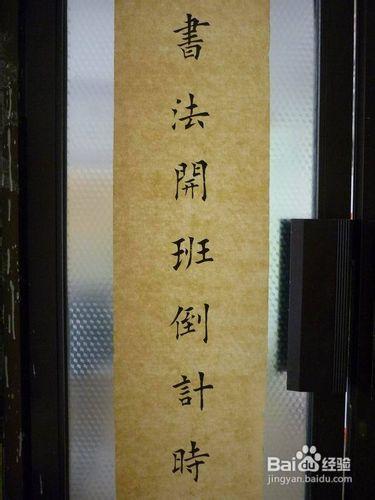 書法開班倒計時
Bai百度经验
jingyan.baidu.com